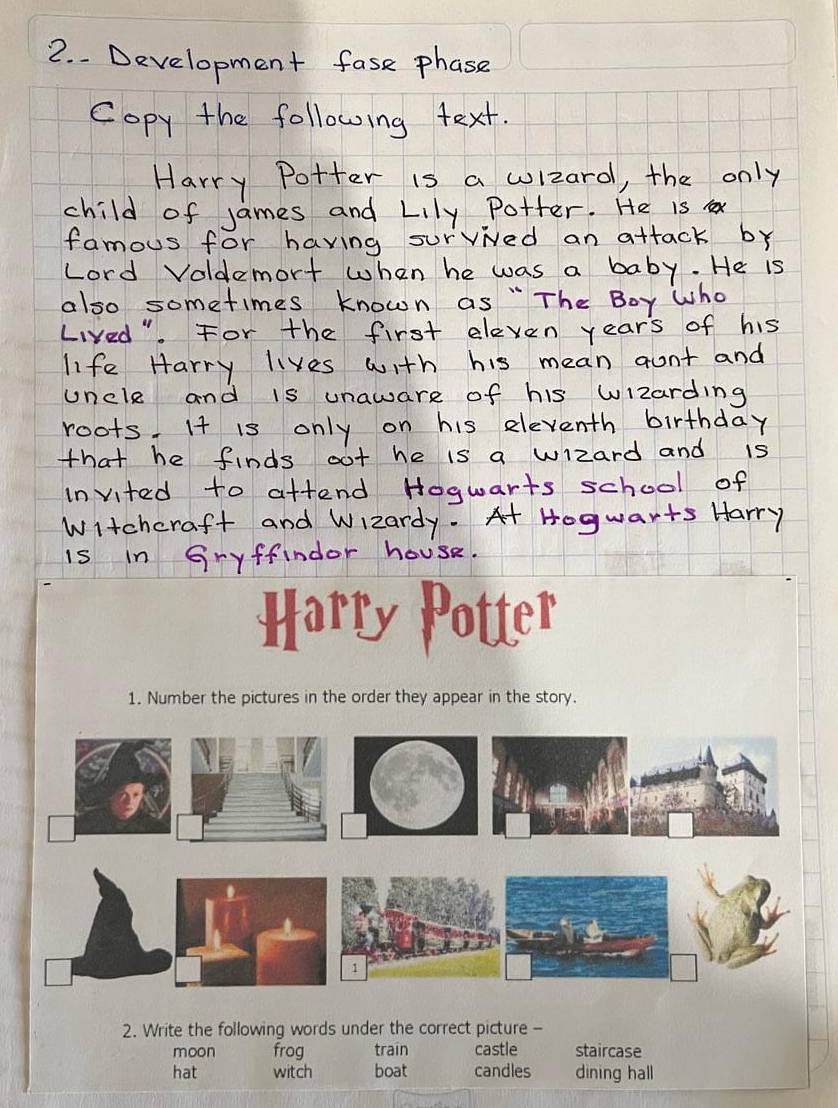 2.- Development fase phase
Copy the following text.
Harry Potter is a wizard, the only
child of james and Lily Potter. He is
famous for having survived an attack by
Lord Voldemort when he was a baby. He is
also sometimes known as "The Boy Who
Lived". For the first eleven years of his
life Harry lives with his mean aunt and
uncle and is unaware of his wizarding
roots. It is only on his eleventh birthday
that he finds out he is a wizard and is
invited to attend Hogwarts school of
Witchcraft and Wizardy. At Hogwarts Harry
is in Gryffindor house.
Harry Potter
1. Number the pictures in the order they appear in the story.
1
2. Write the following words under the correct picture –
moon frog train castle staircase
hat witch boat candles dining hall